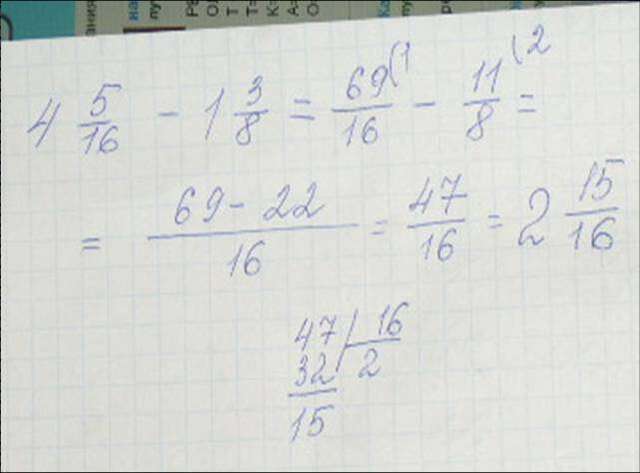 на
4 5/16 - 1 3/8 = 69/16 (1 - 11/8 (2 =
= 69 - 22/16 = 47/16 = 2 15/16
47 | 16
32 | 2
15